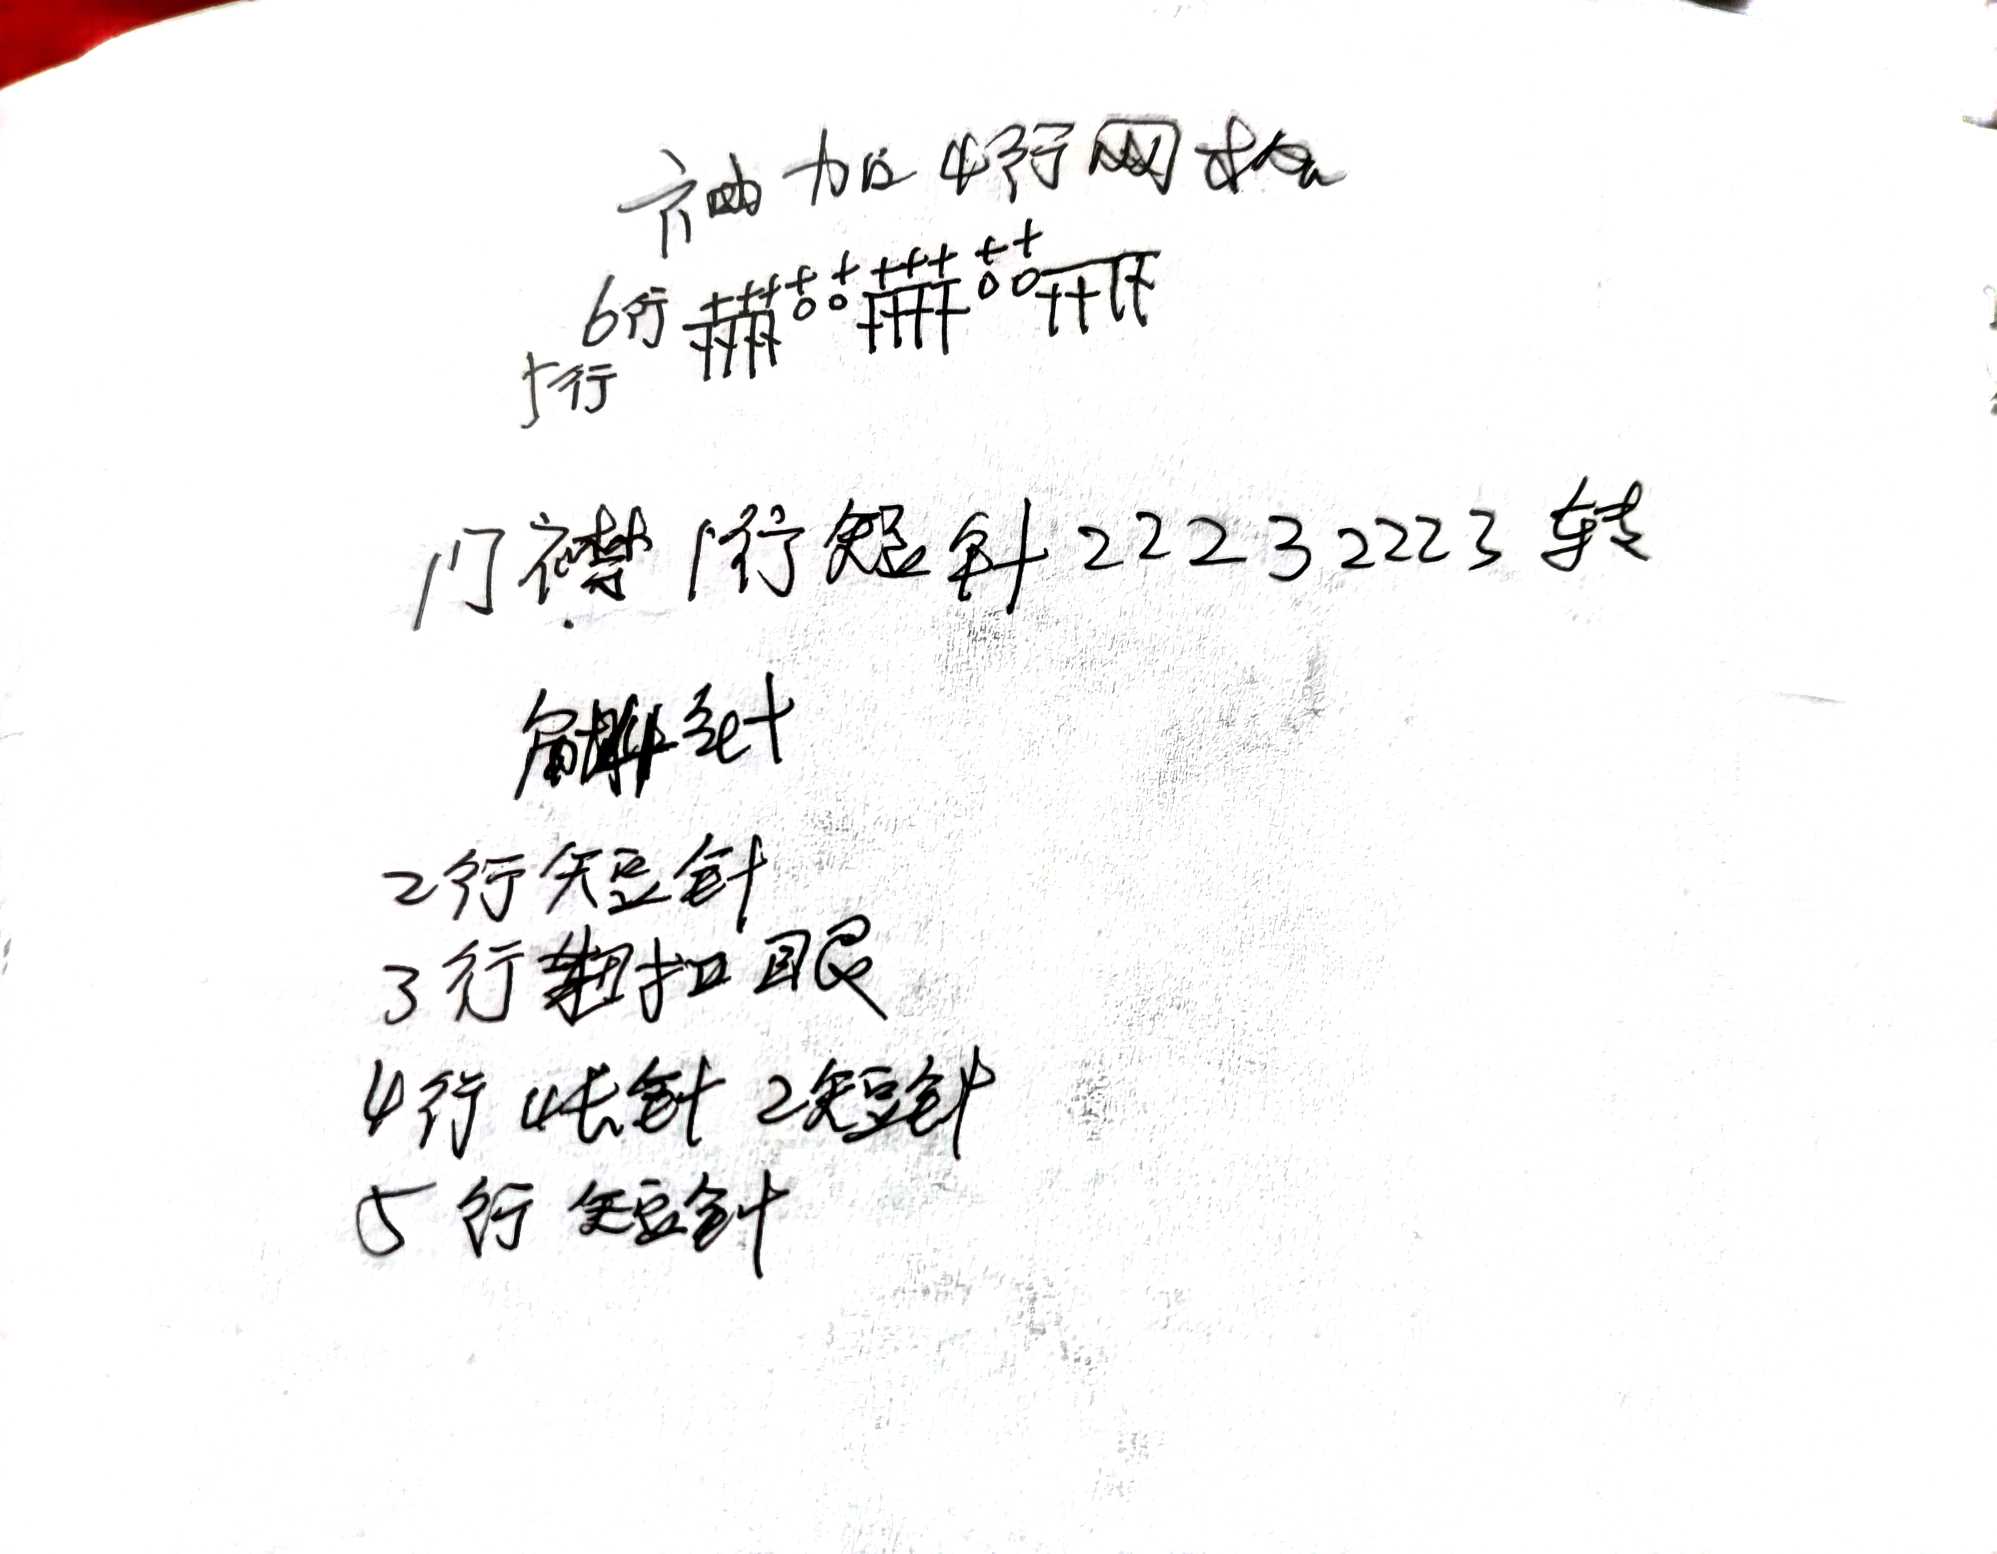 袖加4行网格
6行
5行
门襟1行短针22232223转
角 针
2行短针
3行 扣眼
4行4长针2短针
5行短针